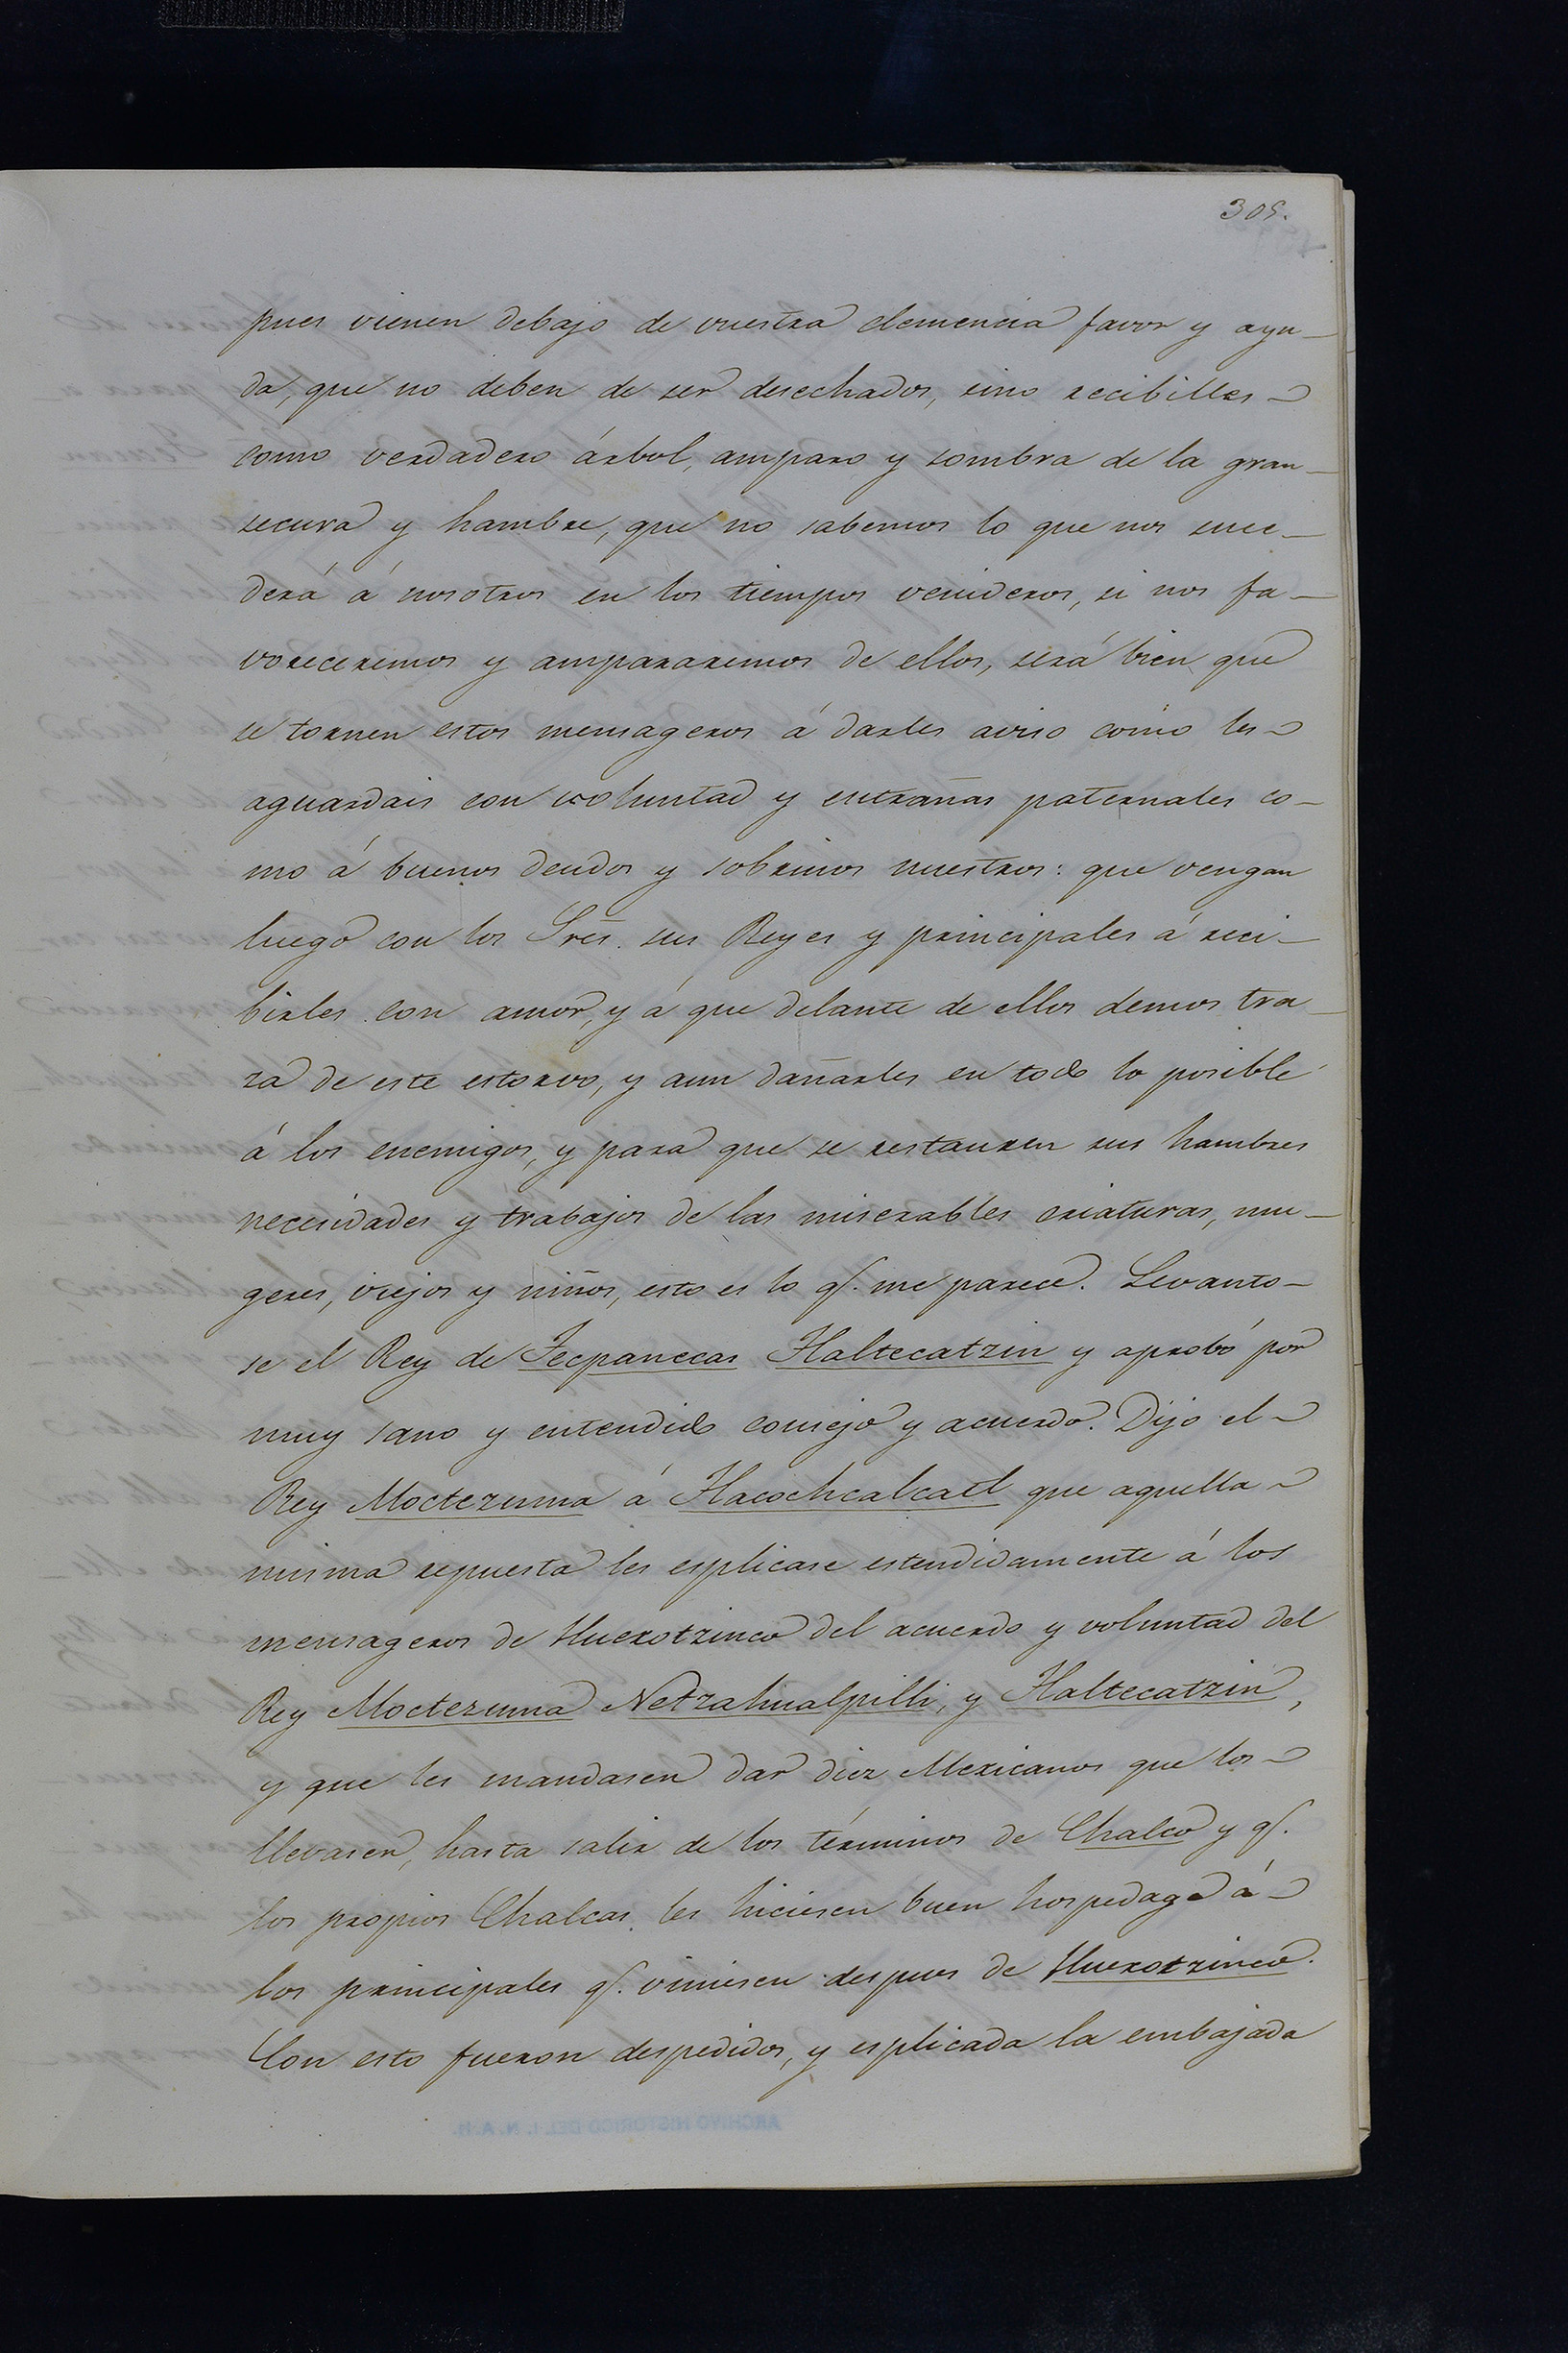 305.
pues vienen debajo de vuestra clemencia favor y ayu-
da, que no deben de ser desechados, sino recibilles
como verdadero árbol, amparo y sombra de la gran
secura y hambre, que no sabemos lo que nos suce-
derá á nosotros en los tiempos venideros, si nos fa-
voreceremos y ampararemos de ellos, será bien que
se tornen estos mensageros á darles aviso como les
aguardais con voluntad y entrañas paternales co-
mo á buenos deudos y sobrinos nuestros: que vengan
luego con los Sres. sus Reyes y principales á reci-
birles con amor, y á que delante de ellos demos tra-
za de este estorvo, y aun dañarles en todo lo posible
á los enemigos, y para que se restauren sus hambres
necesidades y trabajos de las miserables criaturas, mu-
geres, viejos y niños, esto es lo q. me parece. Levanto-
se el Rey de Tecpanecas Tlaltecatzin y aprobó por
muy sano y entendido consejo y acuerdo. Dijo el
Rey Moctezuma á Tlacochcalcatl que aquella
misma repuesta les esplicase estendidamente á los
mensageros de Huexotzinco del acuerdo y voluntad del
Rey Moctezuma Netzahualpilli, y Tlaltecatzin,
y que les mandasen dar diez Mexicanos que los
llevasen, hasta salir de los términos de Chalco y q.
los propios Chalcas les hiciesen buen hospedage á
los principales q. viniesen despues de Huexotzinco.
Con esto fueron despedidos, y esplicada la embajada
ARCHIVO HISTORICO DEL I. N. A. H.